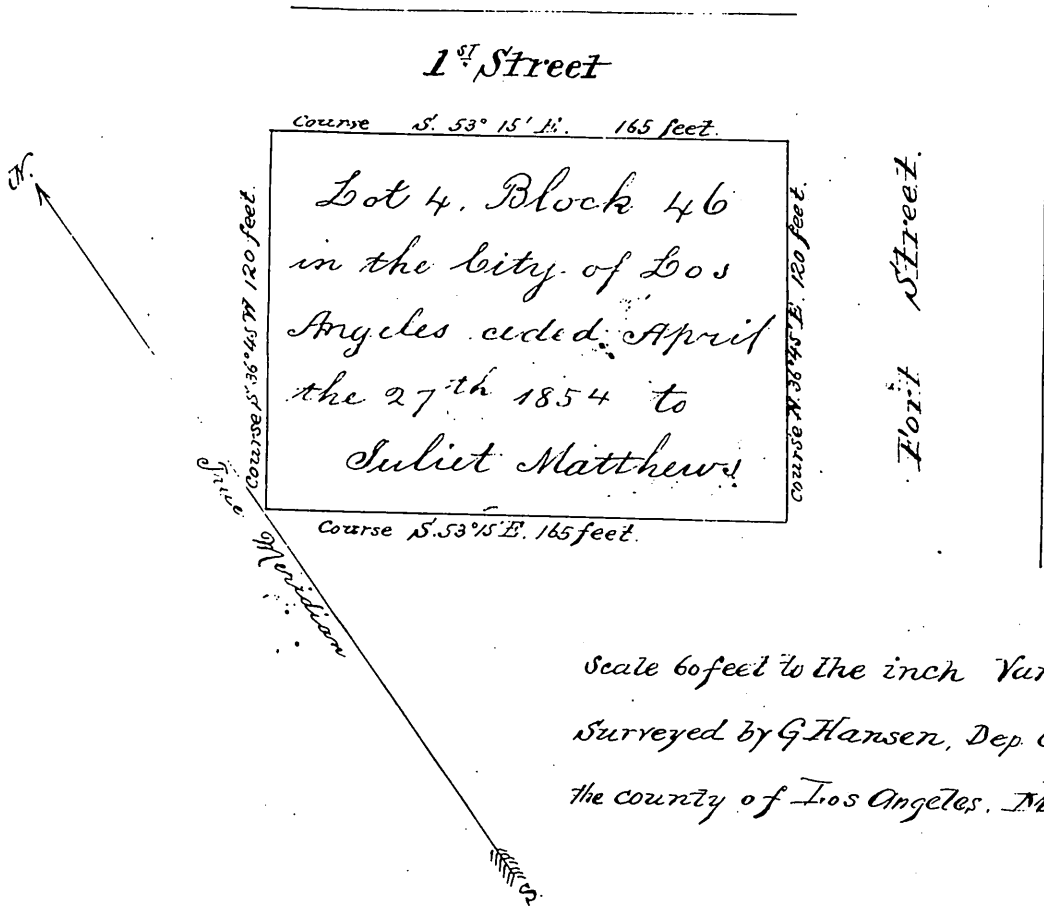 1ST Street
Course S. 53° 15' E. 165 feet.
N.
Course S 36° 45 W 120 feet.
Lot 4. Block 46
in the City of Los
Angeles ceded April
the 27th 1854 to
Juliet Matthews
Course N. 36° 45' E. 120 feet.
Fort Street.
Course S. 53° 15 E. 165 feet.
True Meridian
Scale 60 feet to the inch
Surveyed by G Hansen, Dep.
the county of Los Angeles.
S.